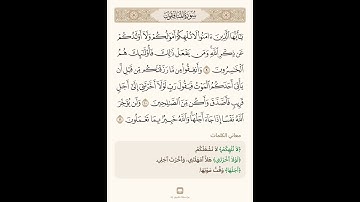 سُورَةُ المُنَافِقُونَ
يَٰٓأَيُّهَا ٱلَّذِينَ ءَامَنُوا۟ لَا تُلْهِكُمْ أَمْوَٰلُكُمْ وَلَآ أَوْلَٰدُكُمْ
عَن ذِكْرِ ٱللَّهِ وَمَن يَفْعَلْ ذَٰلِكَ فَأُو۟لَٰٓئِكَ هُمُ
ٱلْخَٰسِرُونَ ٩ وَأَنفِقُوا۟ مِن مَّا رَزَقْنَٰكُم مِّن قَبْلِ أَن
يَأْتِىَ أَحَدَكُمُ ٱلْمَوْتُ فَيَقُولَ رَبِّ لَوْلَآ أَخَّرْتَنِىٓ إِلَىٰٓ أَجَلٍ
قَرِيبٍ فَأَصَّدَّقَ وَأَكُن مِّنَ ٱلصَّٰلِحِينَ ١٠ وَلَن يُؤَخِّرَ
ٱللَّهُ نَفْسًا إِذَا جَآءَ أَجَلُهَا وَٱللَّهُ خَبِيرٌۢ بِمَا تَعْمَلُونَ ١١
معاني الكلمات
﴿لَا تُلْهِكُمْ﴾ لَا تَشْغَلْكُمْ.
﴿لَوْلَا أَخَّرْتَنِي﴾ هَلَّا أَمْهَلْتَنِي، وَأَخَّرْتَ أَجَلِي.
﴿أَجَلُهَا﴾ وَقْتُ مَوْتِهَا.